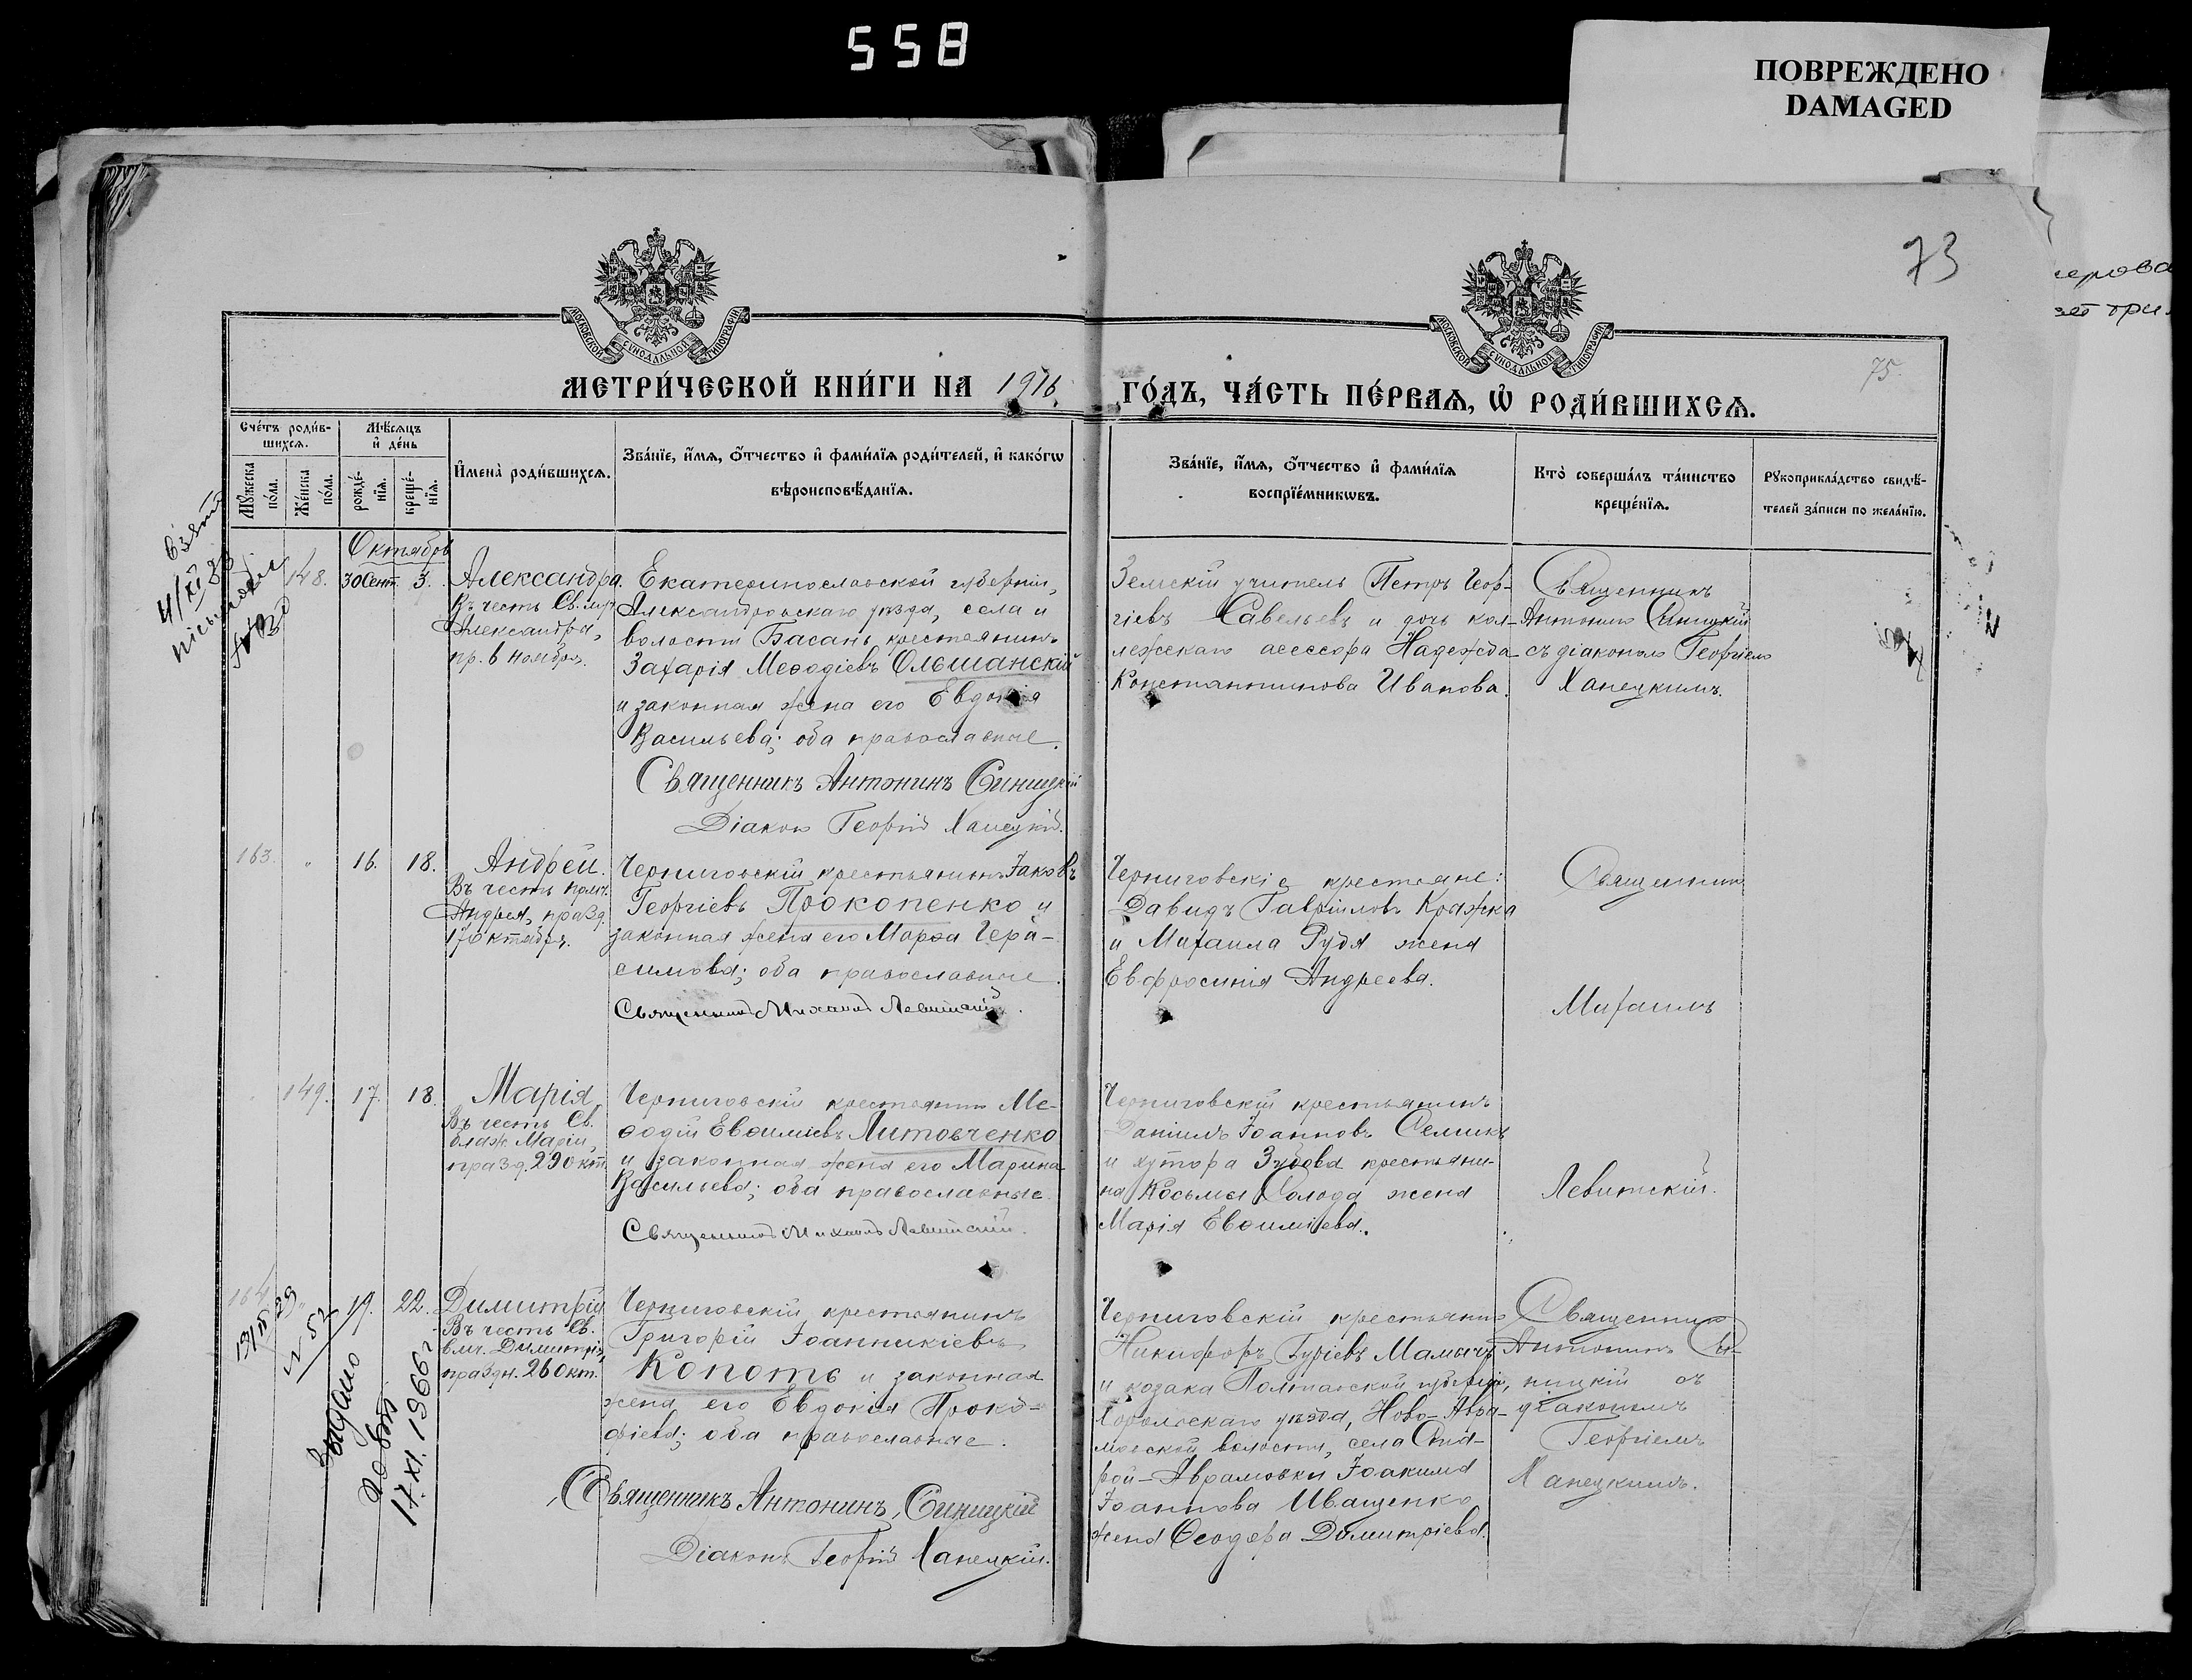 558
ПОВРЕЖДЕНО
DAMAGED
73
75
МОСКОВСКОЙ СѴНОДАЛЬНОЙ ТИПОГРАФІИ
МОСКОВСКОЙ СѴНОДАЛЬНОЙ ТИПОГРАФІИ
МЕТРИ́ЧЕСКОЙ КНИ́ГИ НА 1916 ГО́ДЪ, ЧА́СТЬ ПЕ́РВАѦ, Ѡ҆ РОДИ́ВШИХСѦ.
Сче́тъ роди́в-
шихсѧ.
Мѣ́сѧцъ
и҆ де́нь
Мꙋ́жеска по́ла.
Же́нска по́ла.
рожде́-
нїѧ.
креще́-
нїѧ.
И҆мена̀ роди́вшихсѧ.
Зва́нїе, и҆́мѧ, ѻ҆́тчество и҆ фами́лїѧ роди́телей, и҆ како́гѡ
вѣроисповѣ́данїѧ.
Зва́нїе, и҆́мѧ, ѻ҆́тчество и҆ фами́лїѧ
воспрїе́мникѡвъ.
Кто̀ соверша́лъ та́инство
креще́нїѧ.
Рꙋкоприкла́дство свидѣ́-
телей за́писи по жела́нїю.
Октябрь
148. 30 Сент. 3.
Александра.
Въ честь Св. мр.
Александры,
пр. 6 ноября.
Екатеринославской губерніи,
Александровскаго уѣзда, села и
волости Басань, крестьянинъ
Захарія Меѳодіевъ Ольшанскій
и законная жена его Евдокія
Васильева; оба православные.
Священникъ Антонинъ Синицкій
Діаконъ Георгій Ханецкій.
Земскій учитель Петръ Геор-
гіевъ Савельевъ и дочь кол-
лежскаго асессора Надежда
Константинова Иванова.
Священникъ
Антонинъ Синицкій
съ діакономъ Георгіемъ
Ханецкимъ.
163. " 16. 18.
Андрей.
Въ честь прмч.
Андрея, празд.
17 октября.
Черниговскій крестьянинъ Іаковъ
Георгіевъ Прокопенко и
законная жена его Марѳа Гера-
симова; оба православные.
Священникъ Михаилъ Левитскій.
Черниговскіе крестьяне:
Давидъ Гавріиловъ Кряжка
и Михаила Рудя жена
Евфросинія Андреева.
Священникъ
Михаилъ
Левитскій.
149. 17. 18.
Марія
Въ честь Св.
блаж. Маріи,
празд. 29 окт.
Черниговскій крестьянинъ Ме-
ѳодій Евѳиміевъ Литовченко
и законная жена его Марина
Васильева; оба православные.
Священникъ Михаилъ Левитскій.
Черниговскій крестьянинъ
Даніилъ Іоанновъ Семикъ
и хутора Зубова крестьяни-
на Косьмы Солода жена
Марія Евѳиміева.
164 " 19. 22.
Димитрій
Въ честь Св.
влмч. Димитрія,
праздн. 26 окт.
Черниговскій крестьянинъ
Григорій Іоанникіевъ
Копоть и законная
жена его Евдокія Проко-
фіева; оба православные.
Священникъ Антонинъ Синицкій
Діаконъ Георгій Ханецкій.
Черниговскій крестьянинъ
Никифоръ Гуріевъ Мамычъ
и козака Полтавской губерніи,
Хорольскаго уѣзда, Ново-Авра-
мовской волости, села Ста-
рой-Аврамовки Іоакима
Іоаннова Иващенко
жена Ѳеодора Димитріева.
Священникъ
Антонинъ Си-
ницкій съ
діакономъ
Георгіемъ
Ханецкимъ.
N 52
Выдано
17. XI. 1966 г